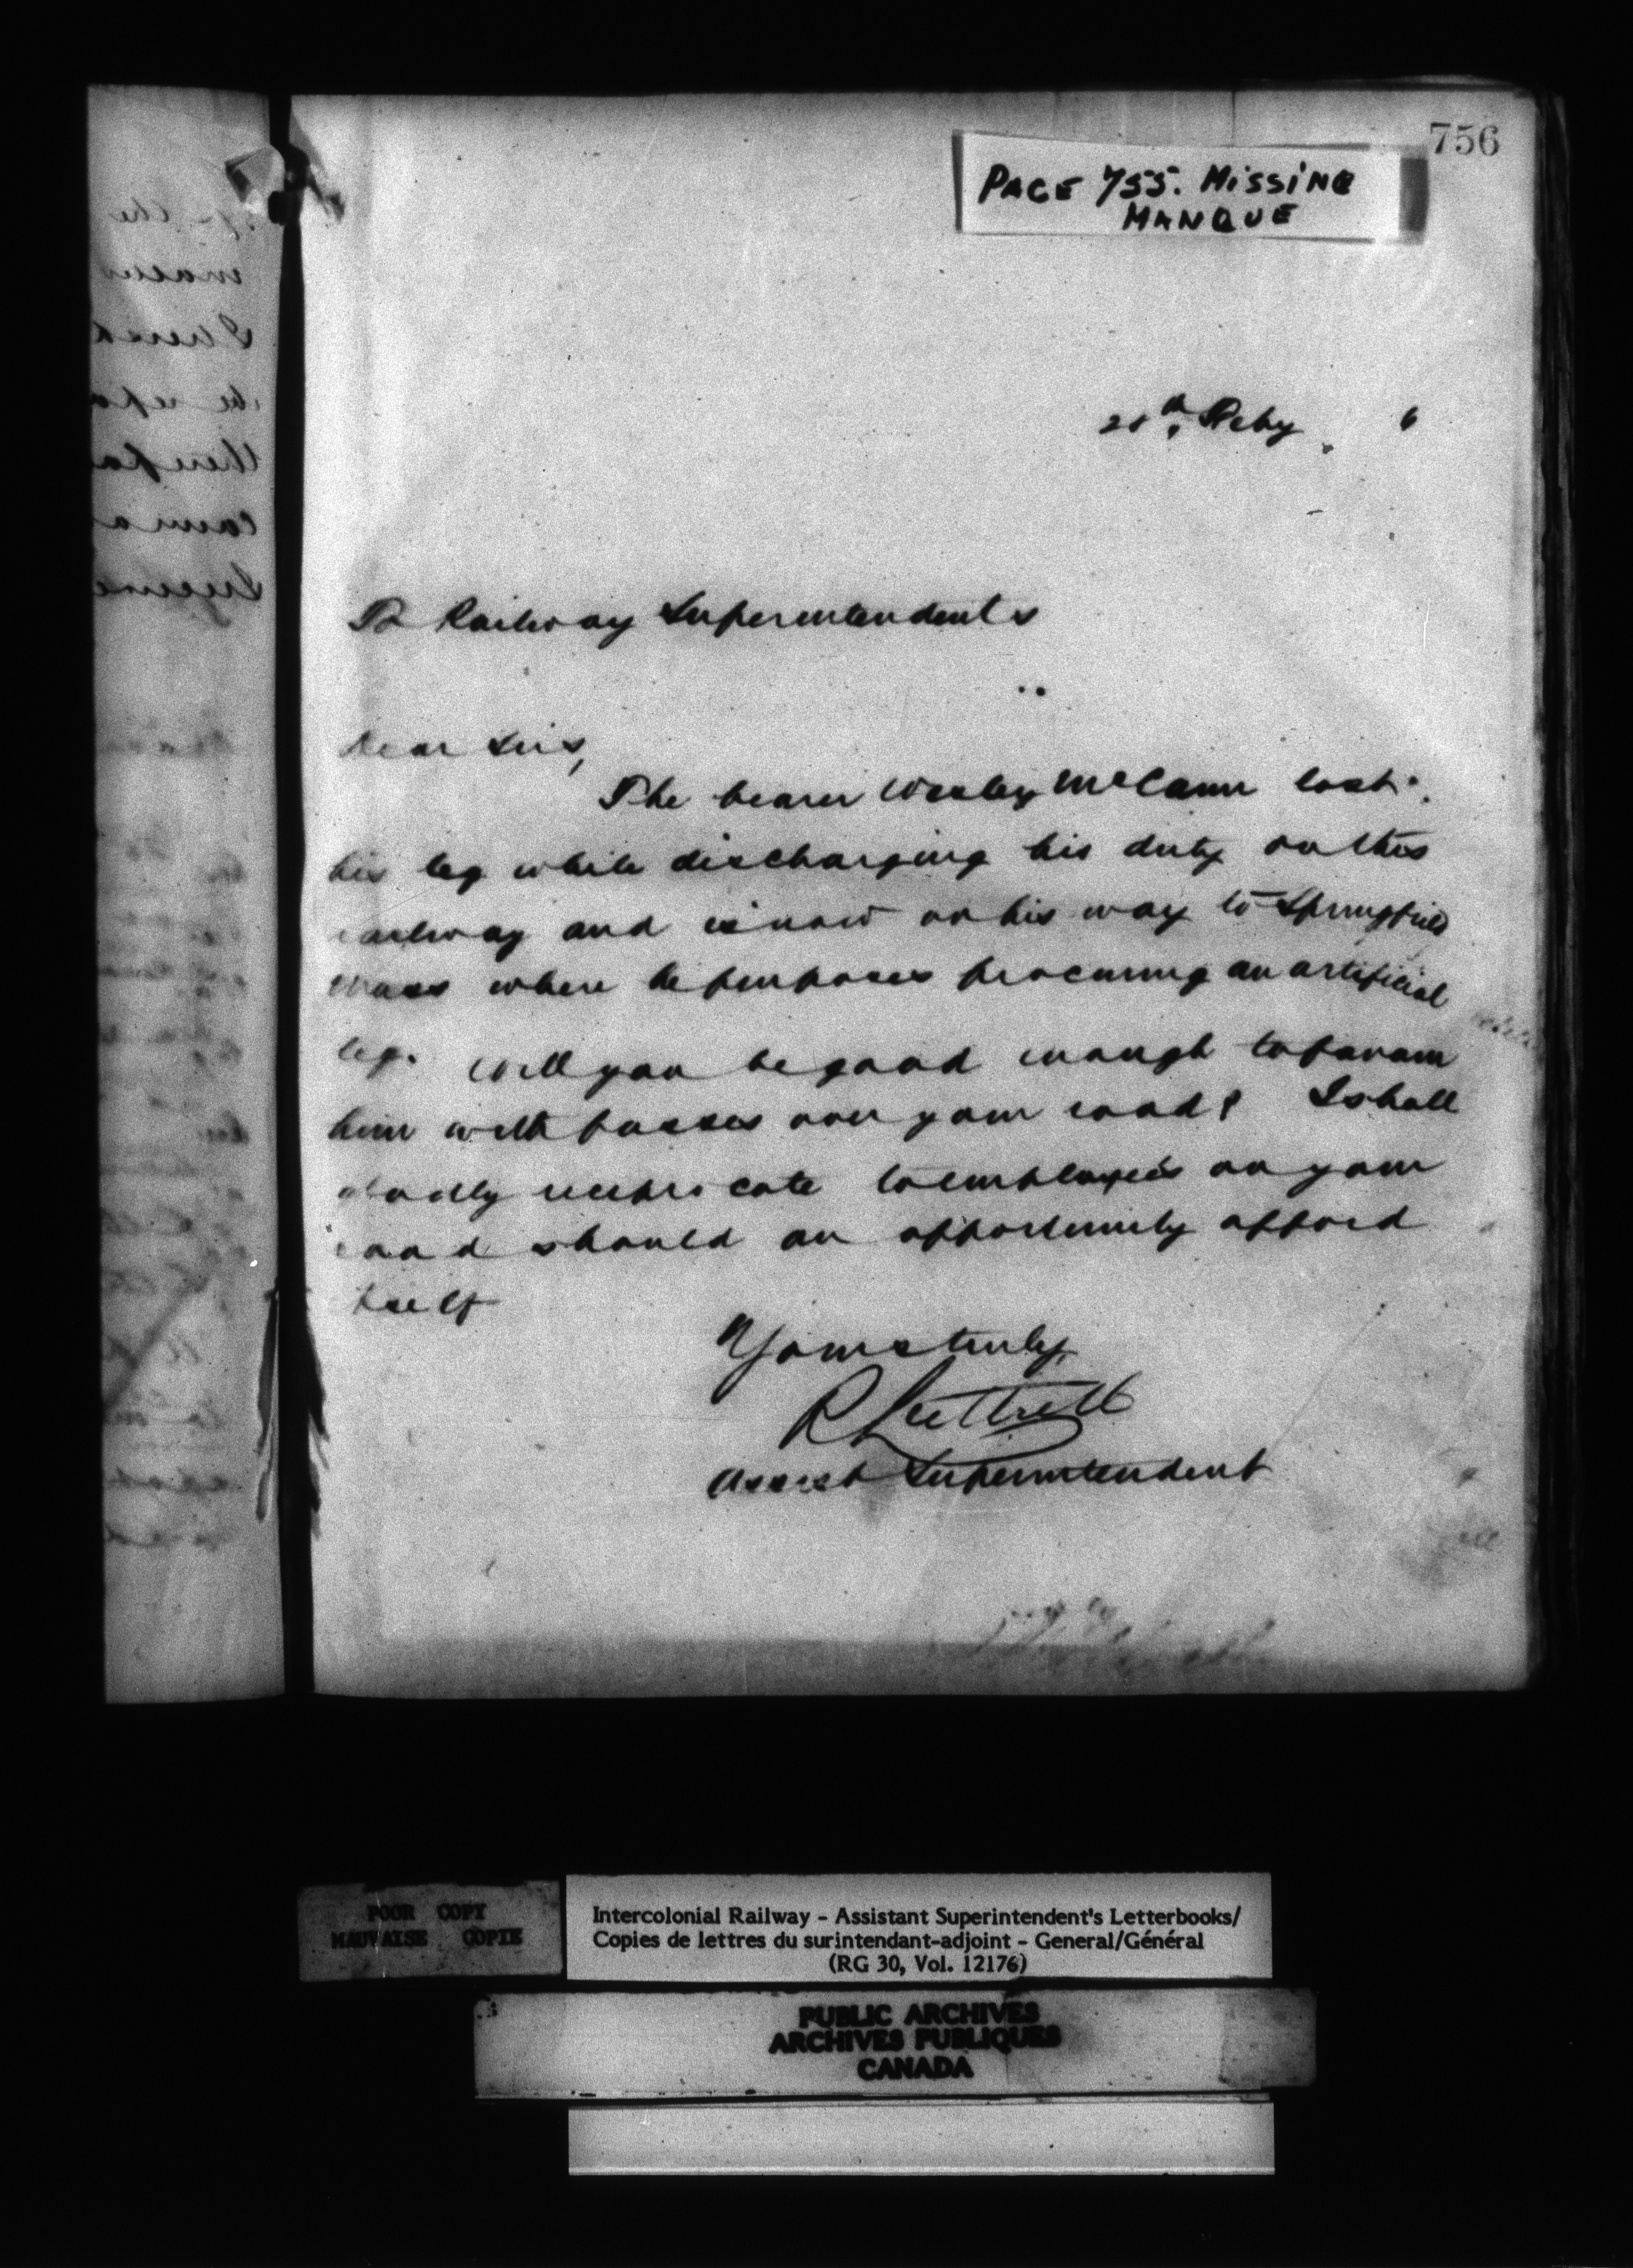 756
PAGE 755. MISSING
MANQUE
28th Feby 6
To Railway Superintendents
Dear Sirs,
The bearer Wesley McCann lost
his leg while discharging his duty on this
railway and is now on his way to Springfield
Mass where he purposes procuring an artificial
leg. Will you be good enough to favour
him with passes over your road? I shall
gladly reciprocate to employees on your
road should an opportunity afford
itself
Yours truly,
R Luttrell
Assist Superintendent
POOR COPY
MAUVAISE COPIE
Intercolonial Railway - Assistant Superintendent's Letterbooks/
Copies de lettres du surintendant-adjoint - General/Général
(RG 30, Vol. 12176)
PUBLIC ARCHIVES
ARCHIVES PUBLIQUES
CANADA